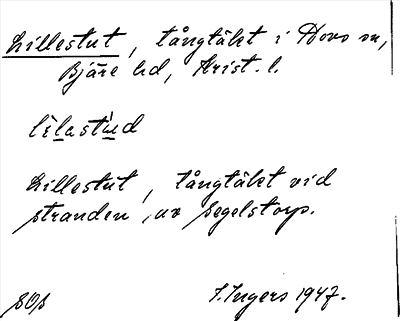 Lillestut, tångtäkt i Hovs sn,
Bjäre hd, Krist. l.
lìlastùd
Lillestut, tångtäkt vid
stranden, av Segelstorp.
SOS
I. Ingers 1947.